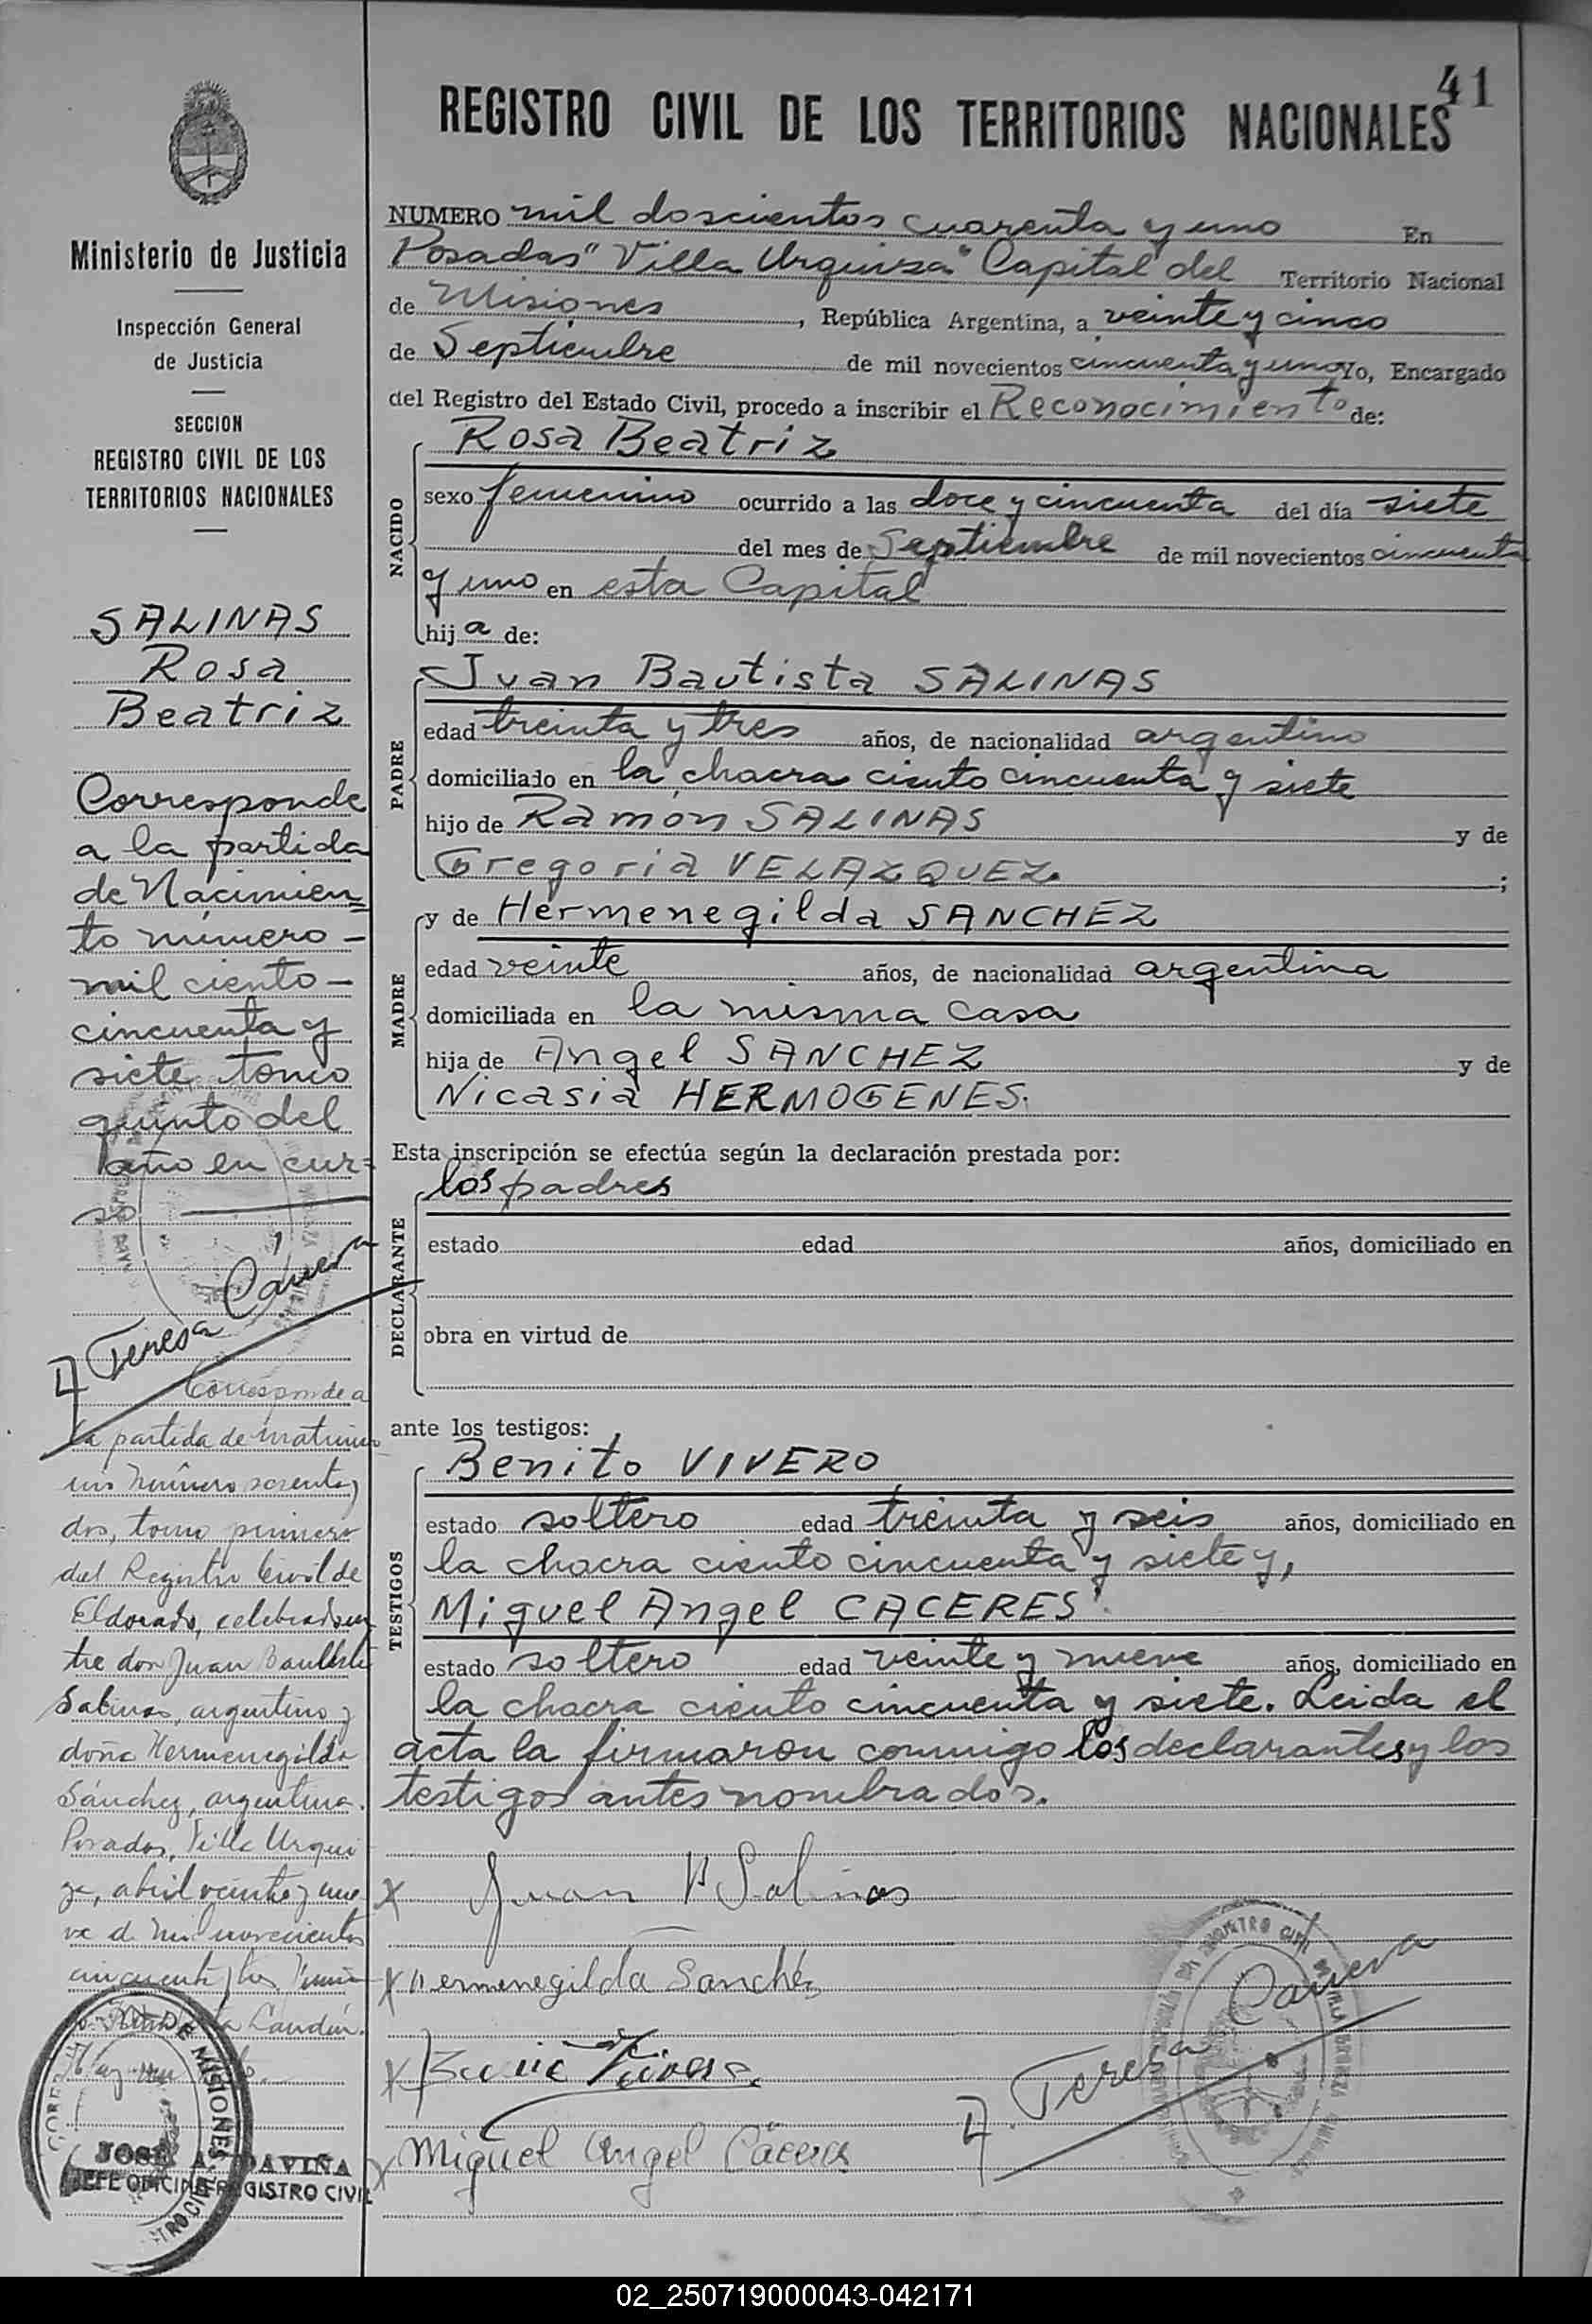 41
REGISTRO CIVIL DE LOS TERRITORIOS NACIONALES
Ministerio de Justicia
Inspección General
de Justicia
SECCION
REGISTRO CIVIL DE LOS
TERRITORIOS NACIONALES
SALINAS
Rosa
Beatriz
Corresponde
a la partida
de Nacimien=
to número -
mil ciento -
cincuenta y
siete tomo
quinto del
año en cur=
so
Teresa
Corresponde a
la partida de matrimo
nio número sesenta y
dos, tomo primero
del Registro Civil de
Eldorado, celebrado en
tre don Juan Bautista
Salinas, argentino y
doña Hermenegilda
Sánchez, argentina.
Posadas, Villa Urqui
za, abril veinte y nue
ve de mil novecientos
cincuenta y
JOSE A. DAVIÑA
JEFE OFICINA REGISTRO CIVIL
NUMERO mil doscientos cuarenta y uno En
Posadas "Villa Urquiza" Capital del Territorio Nacional
de Misiones, República Argentina, a veinte y cinco
de Septiembre de mil novecientos cincuenta y uno Yo, Encargado
del Registro del Estado Civil, procedo a inscribir el Reconocimiento de:
NACIDO
Rosa Beatriz
sexo femenino ocurrido a las doce y cincuenta del día siete
del mes de Septiembre de mil novecientos cincuenta
y uno en esta Capital
hija de:
PADRE
Juan Bautista SALINAS
edad treinta y tres años, de nacionalidad argentino
domiciliado en la chacra ciento cincuenta y siete
hijo de Ramón SALINAS y de
Gregoria VELAZQUEZ ;
MADRE
y de Hermenegilda SANCHEZ
edad veinte años, de nacionalidad argentina
domiciliada en la misma casa
hija de Angel SANCHEZ y de
Nicasia HERMOGENES.
Esta inscripción se efectúa según la declaración prestada por:
DECLARANTE
los padres
estado edad años, domiciliado en
obra en virtud de
ante los testigos:
TESTIGOS
Benito VIVERO
estado soltero edad treinta y seis años, domiciliado en
la chacra ciento cincuenta y siete y,
Miguel Angel CACERES
estado soltero edad veinte y nueve años, domiciliado en
la chacra ciento cincuenta y siete. Leida el
acta la firmaron conmigo los declarantes y los
testigos antes nombrados.
x Juan B Salinas
x Hermenegilda Sanchéz
x
x Miguel Angel Cáceres
Teresa
02_250719000043-042171